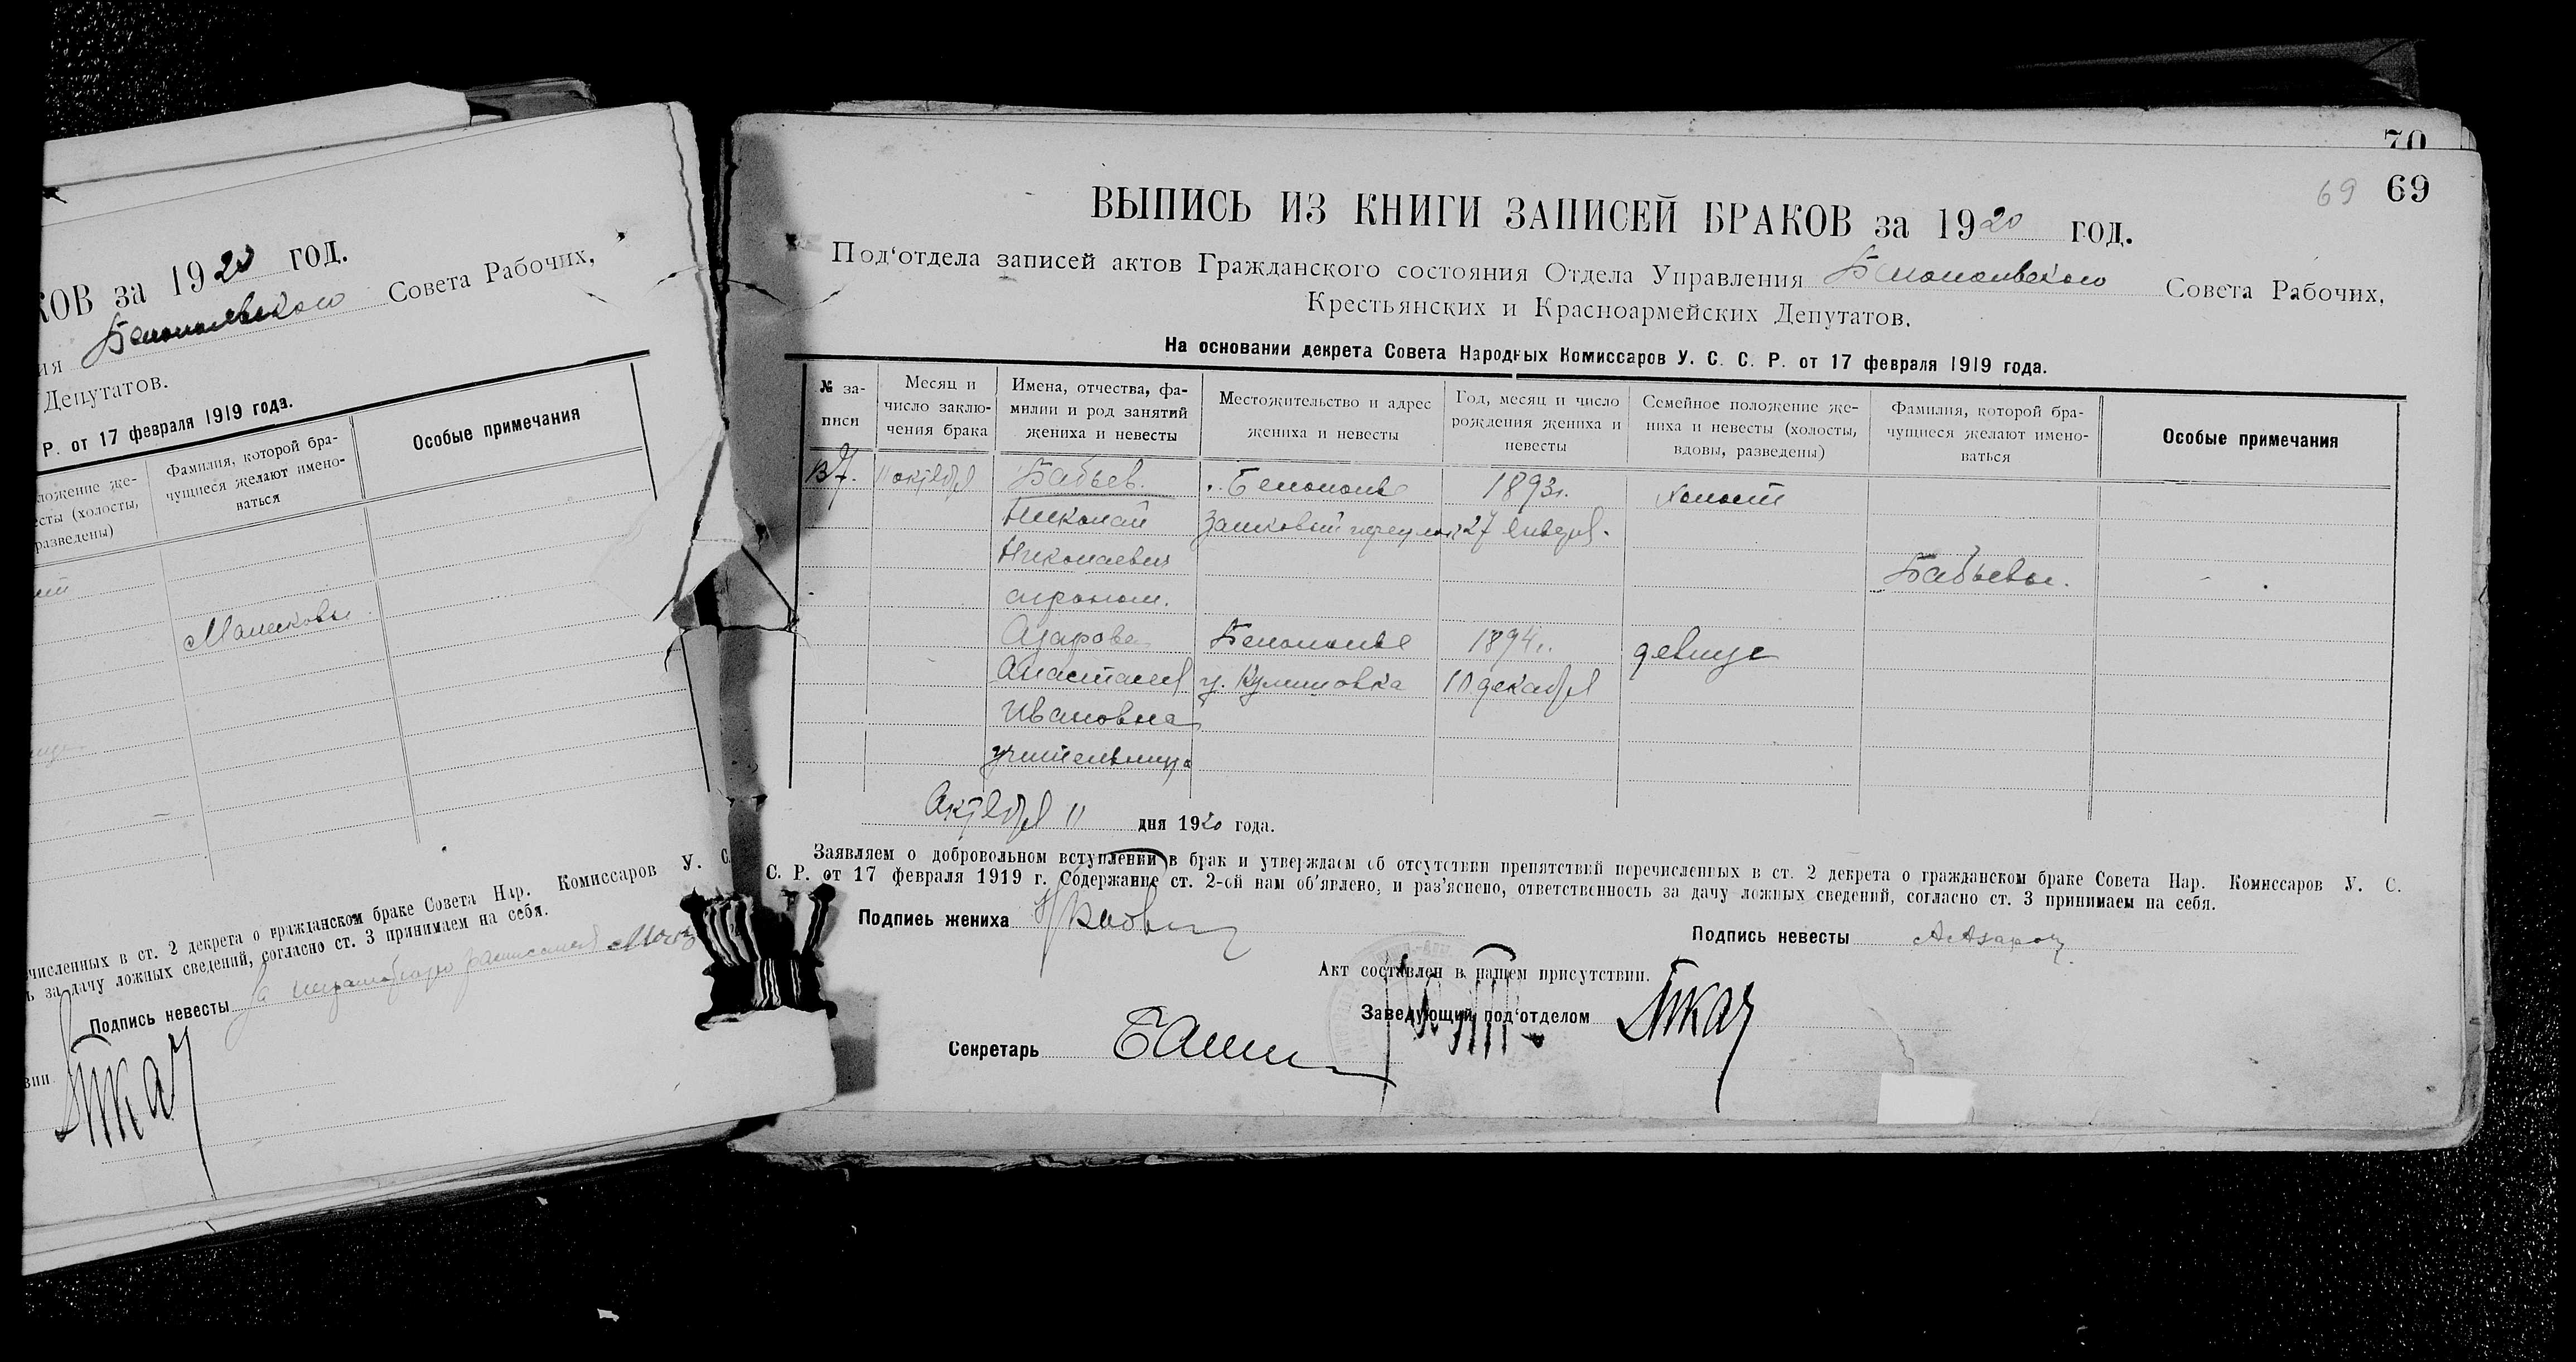 КОВ за 1920 год.
ия Белопольского Совета Рабочих,
Депутатов.
Р. от 17 февраля 1919 года.
ложение же-
есты (холосты,
разведены)
Фамилия, которой бра-
чущиеся желают имено-
ваться
Особые примечания
Машковы
численных в ст. 2 декрета о гражданском браке Совета Нар. Комиссаров У. С.
ь за дачу ложных сведений, согласно ст. 3 принимаем на себя.
Подпись невесты
вии
Ткач
70
69 69
ВЫПИСЬ ИЗ КНИГИ ЗАПИСЕЙ БРАКОВ за 1920 год.
Под‘отдела записей актов Гражданского состояния Отдела Управления Белопольского Совета Рабочих,
Крестьянских и Красноармейских Депутатов.
На основании декрета Совета Народных Комиссаров У. С. С. Р. от 17 февраля 1919 года.
№ за-
писи
Месяц и
число заклю-
чения брака
Имена, отчества, фа-
милии и род занятий
жениха и невесты
Местожительство и адрес
жениха и невесты
Год, месяц и число
рождения жениха и
невесты
Семейное положение же-
ниха и невесты (холосты,
вдовы, разведены)
Фамилия, которой бра-
чущиеся желают имено-
ваться
Особые примечания
137. 11 октября Бабьев. Белополье 1893г. холост
Николай переулок 27 января.
Николаевич Бабьевы.
агроном.
Азарова Белополье 1894г. девица
Анастасия у. Куличовка 10 декабря
Ивановна
учительница
Актября 11 дня 1920 года.
Заявляем о добровольном вступлении в брак и утверждаем об отсутствии препятствий перечисленных в ст. 2 декрета о гражданском браке Совета Нар. Комиссаров У. С.
С. Р. от 17 февраля 1919 г. Содержание ст. 2-ой нам об‘явлено, и раз‘яснено, ответственность за дачу ложных сведений, согласно ст. 3 принимаем на себя.
Подпись жениха
Подпись невесты А Азарова
Акт составлен в нашем присутствии.
Заведующий под‘отделом Ткач
Секретарь